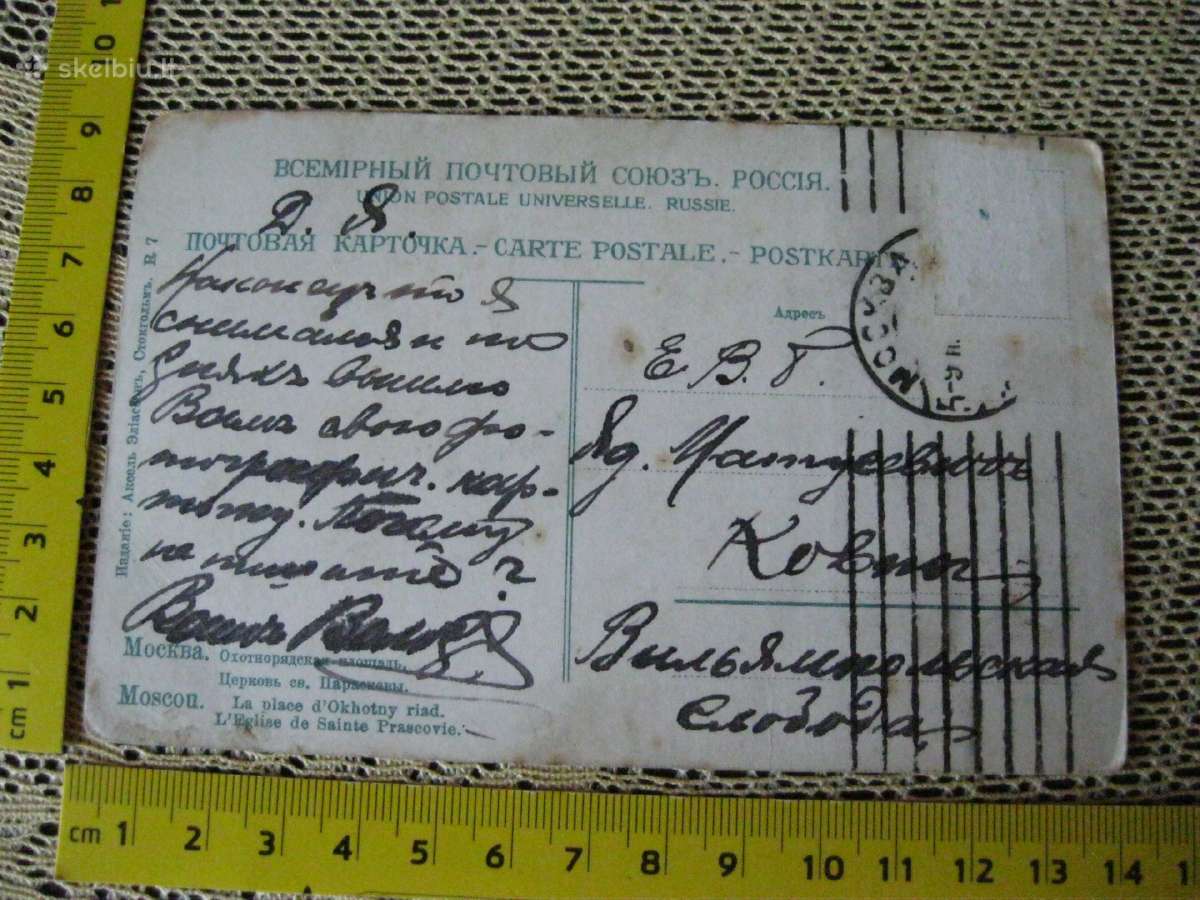 skelbiu.lt
ВСЕМІРНЫЙ ПОЧТОВЫЙ СОЮЗЪ. РОССІЯ.
UNION POSTALE UNIVERSELLE. RUSSIE.
Д. Я.
ПОЧТОВАЯ КАРТОЧКА.-CARTE POSTALE.-POSTKARTE
Наконецъ то я
снимался и на
дняхъ вышлю
Вамъ свою фо-
тографич. кар-
точку.
не пишите?
Вашъ
Адресъ
Е. В. Г.
Яд. Матусевичъ
Ковно
Вильямпольская
Слобода
МОСКВА
Изданіе: Аксель Эліассонъ, Стокгольмъ. R 7
Москва. Охотнорядская площадь.
Церковь св. Параскевы.
Moscou. La place d'Okhotny riad.
L'Eglise de Sainte Prascovie.
cm 1 2 3 4 5 6 7 8 9 10
cm 1 2 3 4 5 6 7 8 9 10 11 12 13 14 15